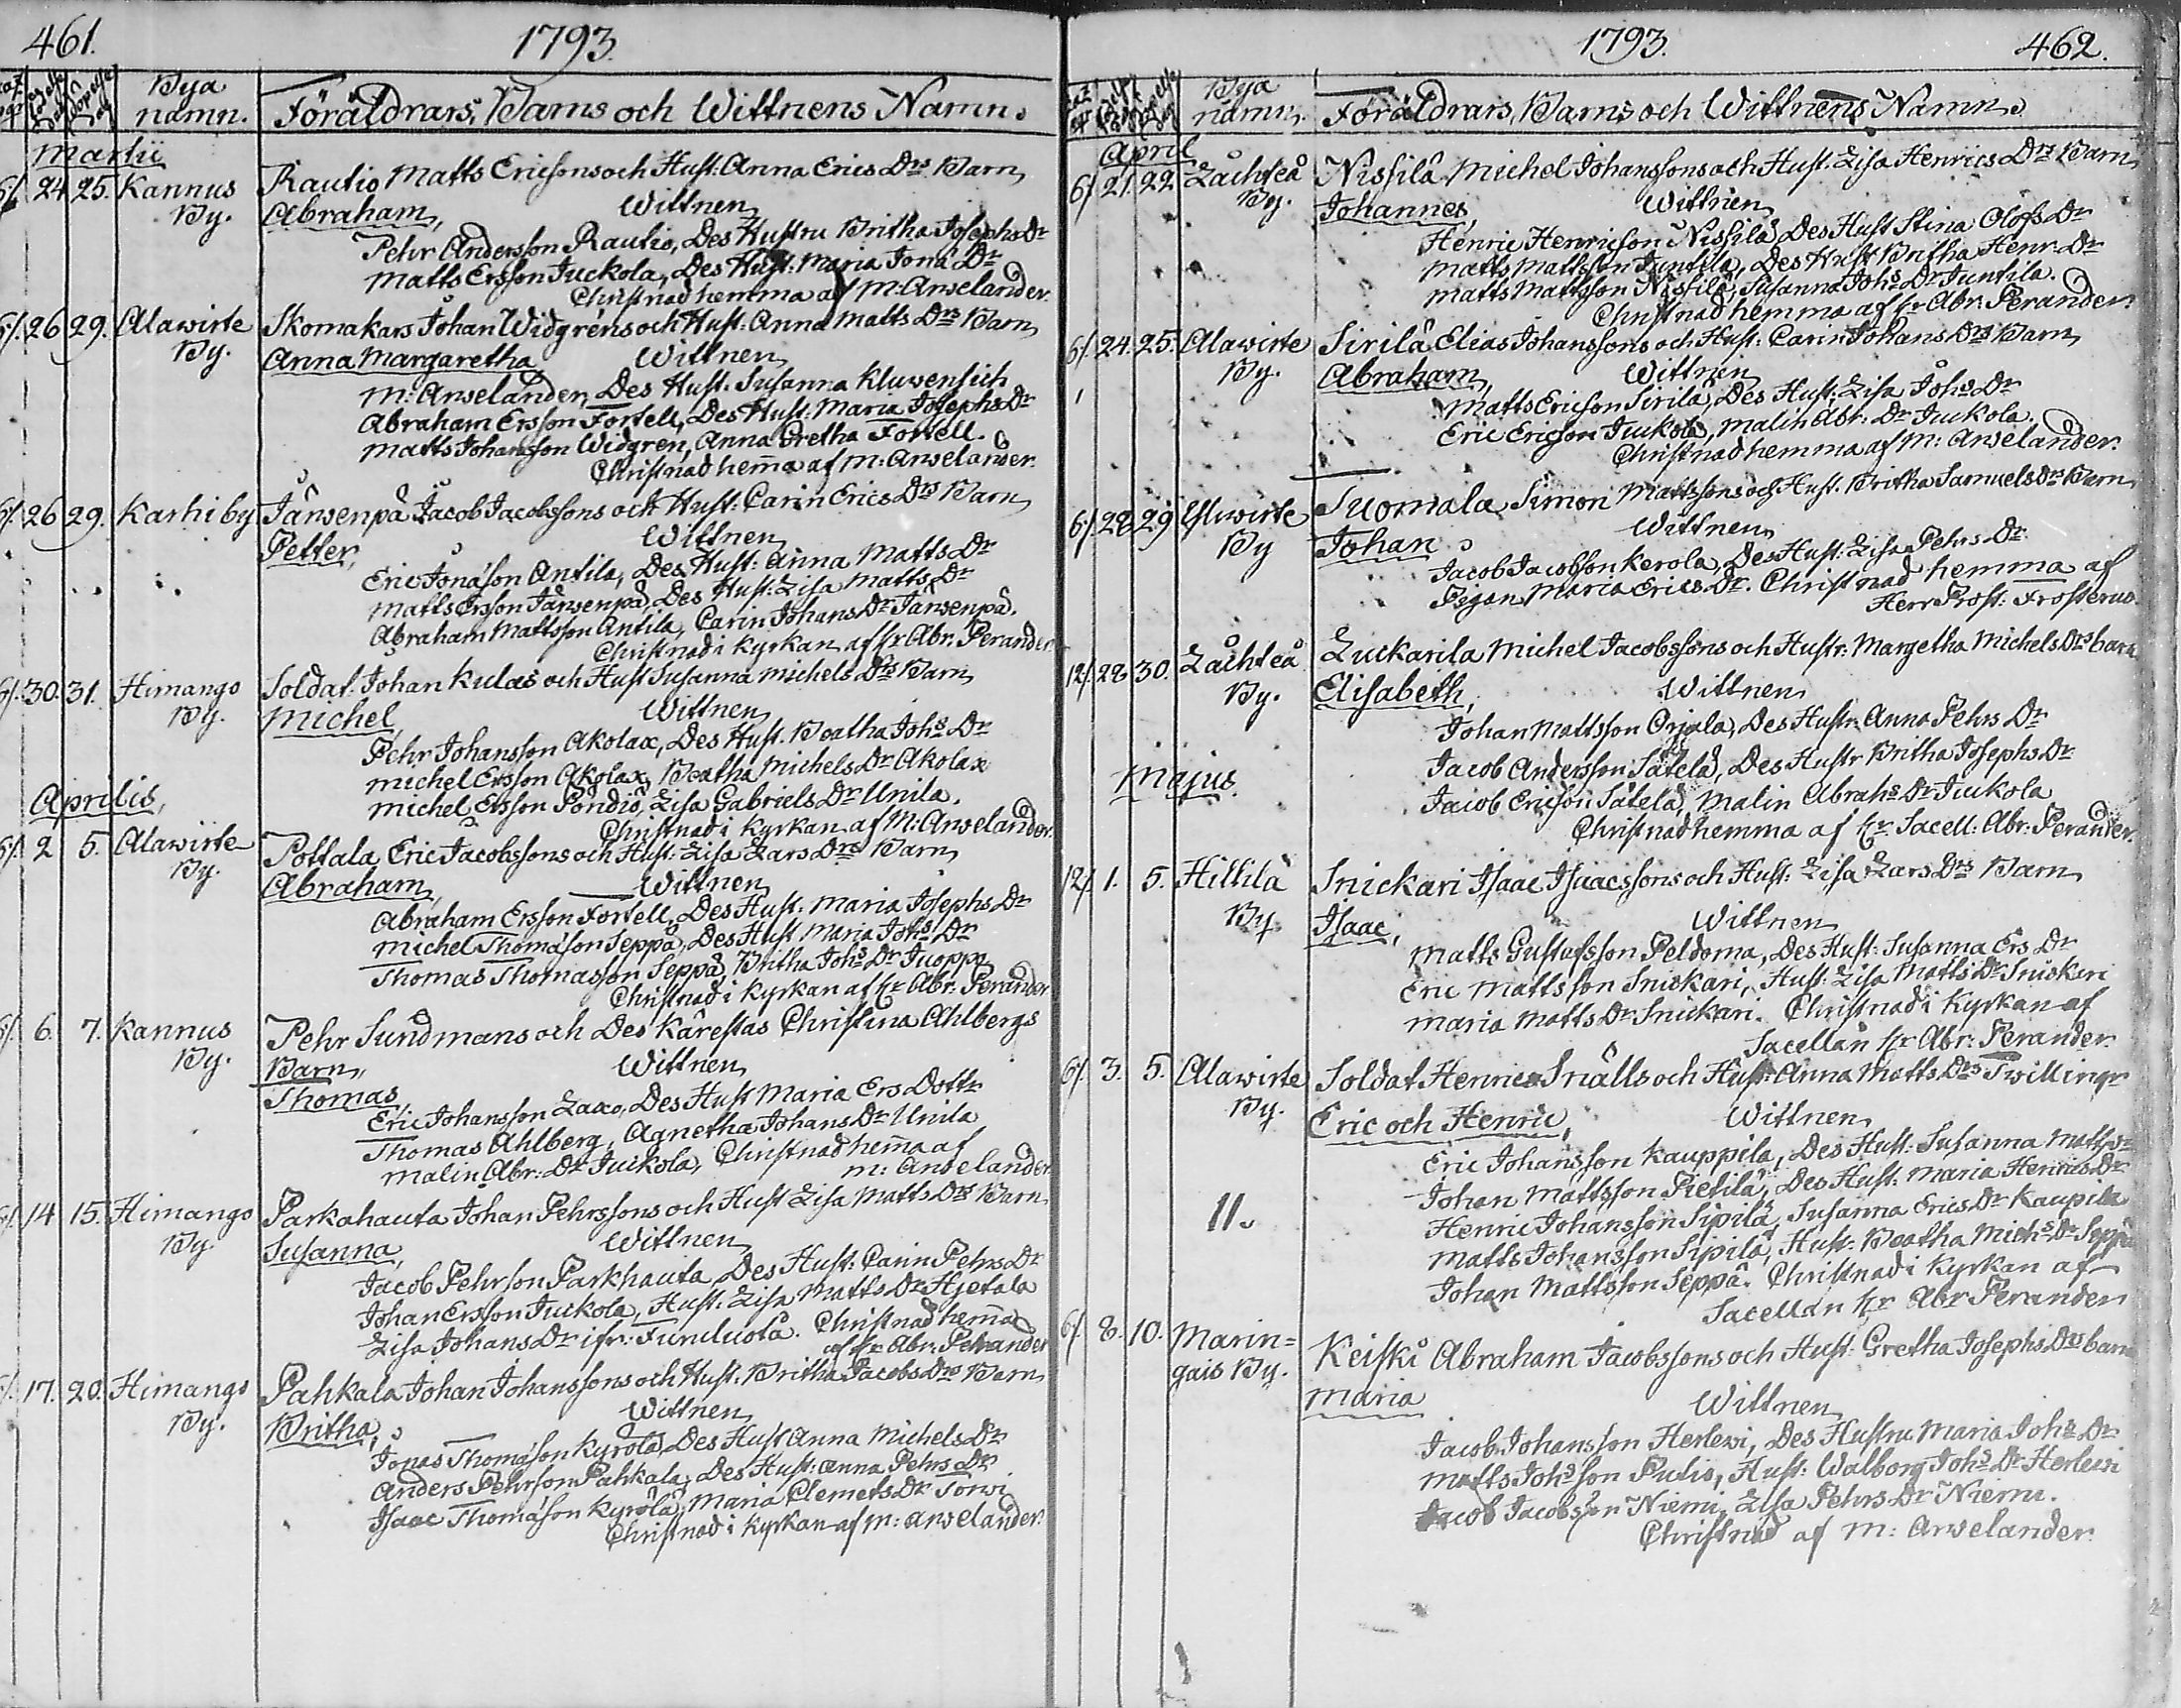 461. 1793.
Bya namn. Föräldrars, Barns och Wittnens Namn.
Martii
6/. 24 25. Kannus By. Rautio Matts Ericsons och Hust: Anna Erics Drs Barn
Abraham, Wittnen
Pehr Andersson Rautio, Des Hustru Britha Josephs Dr
Matts Ersson Juckola, Des Hust: Maria Jona Dr
Christnad hemma af M: Arwelander.
6/. 26 29. Alawirte By. Skomakars Johan Widgréns och Hust: Anna Matts Drs Barn
Anna Margaretha Wittnen
M: Arwelander, Des Hust: Susanna Kluwensich
Abraham Ersson Fortell, Des Hust: Maria Josephs Dr
Matts Johansson Widgren, Anna Gretha Fortell.
Christnad hem̄a af M: Arwelander.
6/. 26 29. Karhi by Järwenpä Jacob Jacobssons och Hust: Carin Erics Drs Barn
Petter, Wittnen
Eric Jonason Antila, Des Hust: Anna Matts Dr
Matts Ersson Järwenpä, Des Hust: Lisa Matts Dr
Abraham Mattsson Antila, Carin Johans Dr Järwenpä.
Christnad i Kyrkan af Hr Abr: Perander
6/. 30. 31. Himango By. Soldat Johan Kulas och Hust Susanna Michels Drs Barn
Michel, Wittnen
Pehr Johansson Akolax, Des Hust. Beatha Johs Dr
Michel Ersson Akolax, Beatha Michels Dr Akolax
Michel Ersson Pöndiö, Lisa Gabriels Dr Unila.
Christnad i Kyrkan af M: Arwelander.
Aprilis,
6/. 2 5. Alawirte By. Pottala Eric Jacobssons och Hust: Lisa Lars Drs Barn
Abraham, Wittnen
Abraham Ersson Fortell, Des Hust. Maria Josephs Dr
Michel Thomason Seppä, Des Hust Maria Johs Dr
Thomas Thomasson Seppä, Britha Johs Dr Juoppa
Christnad i Kyrkan af Hr Abr: Perander
6/. 6. 7. Kannus By. Pehr Sundmans och Des Kärestas Christina Ahlbergs
Barn, Wittnen
Thomas,
Eric Johansson Laxo, Des Hust Maria Ers Dottr
Thomas Ahlberg, Agnetha Johans Dr Unila
Malin Abr: Dr Juckola, Christnad hem̄a af
M: Arwelander
6/. 14 15. Himango By Parkahauta Johan Pehrssons och Hust Lisa Matts Drs Barn
Susanna, Wittnen
Jacob Pehrson Parkhauta, Des Hust: Carin Pehrs Dr
Johan Ersson Juckola, Hust: Lisa Matts Dr Hjetala
Lisa Johans Dr ifr: Junduota. Christnad hem̄a
af Hr Abr: Perander
17. 20. Himango By. Pahkala Johan Johanssons och Hust. Britha Jacobs Drs Barn
Britha, Wittnen
Jonas Thomason Kyrölä, Des Hust Anna Michels Dr
Anders Pehrson Pahkala, Des Hust: Anna Pehrs Dr
Isaac Thomason Kyrölä, Maria Clemets Dr Torwi
Christnad i Kyrkan af M: Arwelander.
1793. 462.
Bya namn. Föräldrars, Barns och Wittnens Namn.
April
6/. 21. 22. Låchteå By. Nissilä Michel Johanssons och Hust: Lisa Henrics Drs Barn
Johannes, Wittnen
Henric Henricson Nissilä, Des Hust Stina Olofs Dr
Matts Mattsson Juntila, Des Hust Britha Henr: Dr
Matts Mattsson Nissilä, Susanna Johs Dr Juntila.
Christnad hemma af Hr Abr: Perander.
6/. 24. 25. Alawirte By. Sirilä Elias Johanssons och Hust: Carin Johans Drs Barn
Abraham, Wittnen
Matts Ericson Sirilä, Des Hust; Lisa Johs Dr
Eric Ericson Juckola, Malin Abr: Dr Juckola.
Christnad hemma af M: Arwelander.
6/. 28 29 Yliwirte By Suomala Simon Mattssons och Hust. Britha Samuels Drs Barn
Johan Wittnen
Jacob Jacobson Kerola, Des Hust: Lisa Pehrs Dr
Pigan Maria Erics Dr. Christnad hemma af
Herr Prost: Frosterus.
12/. 28 30. Låchteå By. Luckarila Michel Jacobssons och Hustr: Margetha Michels Drs barn
Elisabeth, Wittnen
Johan Mattsson Orjala, Des Hustr: Anna Pehrs Dr
Jacob Andersson Sätelä, Des Hustr Britha Josephs Dr
Jacob Ericson Sätelä, Malin Abrahs Dr Juckola
Christnad hemma af Hr Sacell: Abr: Perander.
Majus.
12/. 1. 5. Hillilä By. Snickari Isaac Isaacssons och Hust: Lisa Lars Drs Barn
Isaac, Wittnen
Matts Gustafsson Peldoma, Des Hust: Susanna Ers Dr
Eric Mattsson Snickari, Hust: Lisa Matts Dr Snickari
Maria Matts Dr Snickari. Christnad i Kyrkan af
Sacellan Hr Abr: Perander.
6/. 3. 5. Alawirte By. Soldat Henric Snälls och Hust: Anna Matts Drs Twillingr
Eric och Henric, Wittnen
Eric Johansson Kauppila, Des Hust: Susanna Matts Dr
Johan Mattsson Pietilä, Des Hust: Maria Henrics Dr
11. Henric Johansson Sipilä, Susanna Erics Dr Kaupila
Matts Johansson Sipilä, Hust: Beatha Michs Dr Seppä
Johan Mattsson Seppä. Christnad i Kyrkan af
Sacellan Hr Abr Perander
6/. 8. 10. Marin=
gais By. Keiski Abraham Jacobssons och Hust: Gretha Josephs Drs barn
Maria Wittnen
Jacob Johansson Herlewi, Des Hustru Maria Johs Dr
Matts Johsson Pulis, Hust: Walborg Johs Dr Herlewi
Jacob Jacobsson Niemi, Lisa Pehrs Dr Niemi.
Christnad af M: Arwelander.